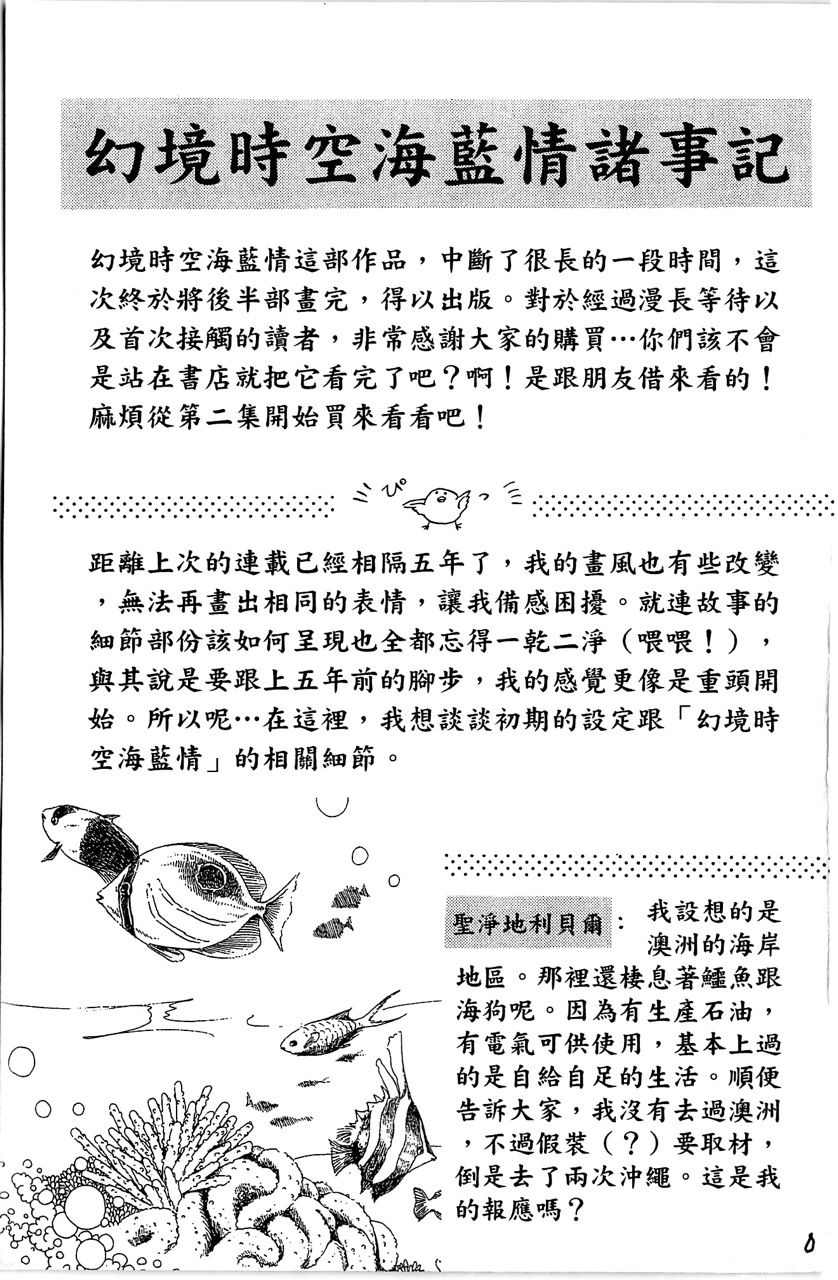 幻境時空海藍情諸事記
幻境時空海藍情這部作品，中斷了很長的一段時間，這
次終於將後半部畫完，得以出版。對於經過漫長等待以
及首次接觸的讀者，非常感謝大家的購買…你們該不會
是站在書店就把它看完了吧？啊！是跟朋友借來看的！
麻煩從第二集開始買來看看吧！
ぴっ
距離上次的連載已經相隔五年了，我的畫風也有些改變
，無法再畫出相同的表情，讓我備感困擾。就連故事的
細節部份該如何呈現也全都忘得一乾二淨（喂喂！），
與其說是要跟上五年前的腳步，我的感覺更像是重頭開
始。所以呢…在這裡，我想談談初期的設定跟「幻境時
空海藍情」的相關細節。
聖淨地利貝爾：我設想的是
澳洲的海岸
地區。那裡還棲息著鱷魚跟
海狗呢。因為有生產石油，
有電氣可供使用，基本上過
的是自給自足的生活。順便
告訴大家，我沒有去過澳洲
，不過假裝（？）要取材，
倒是去了兩次沖繩。這是我
的報應嗎？